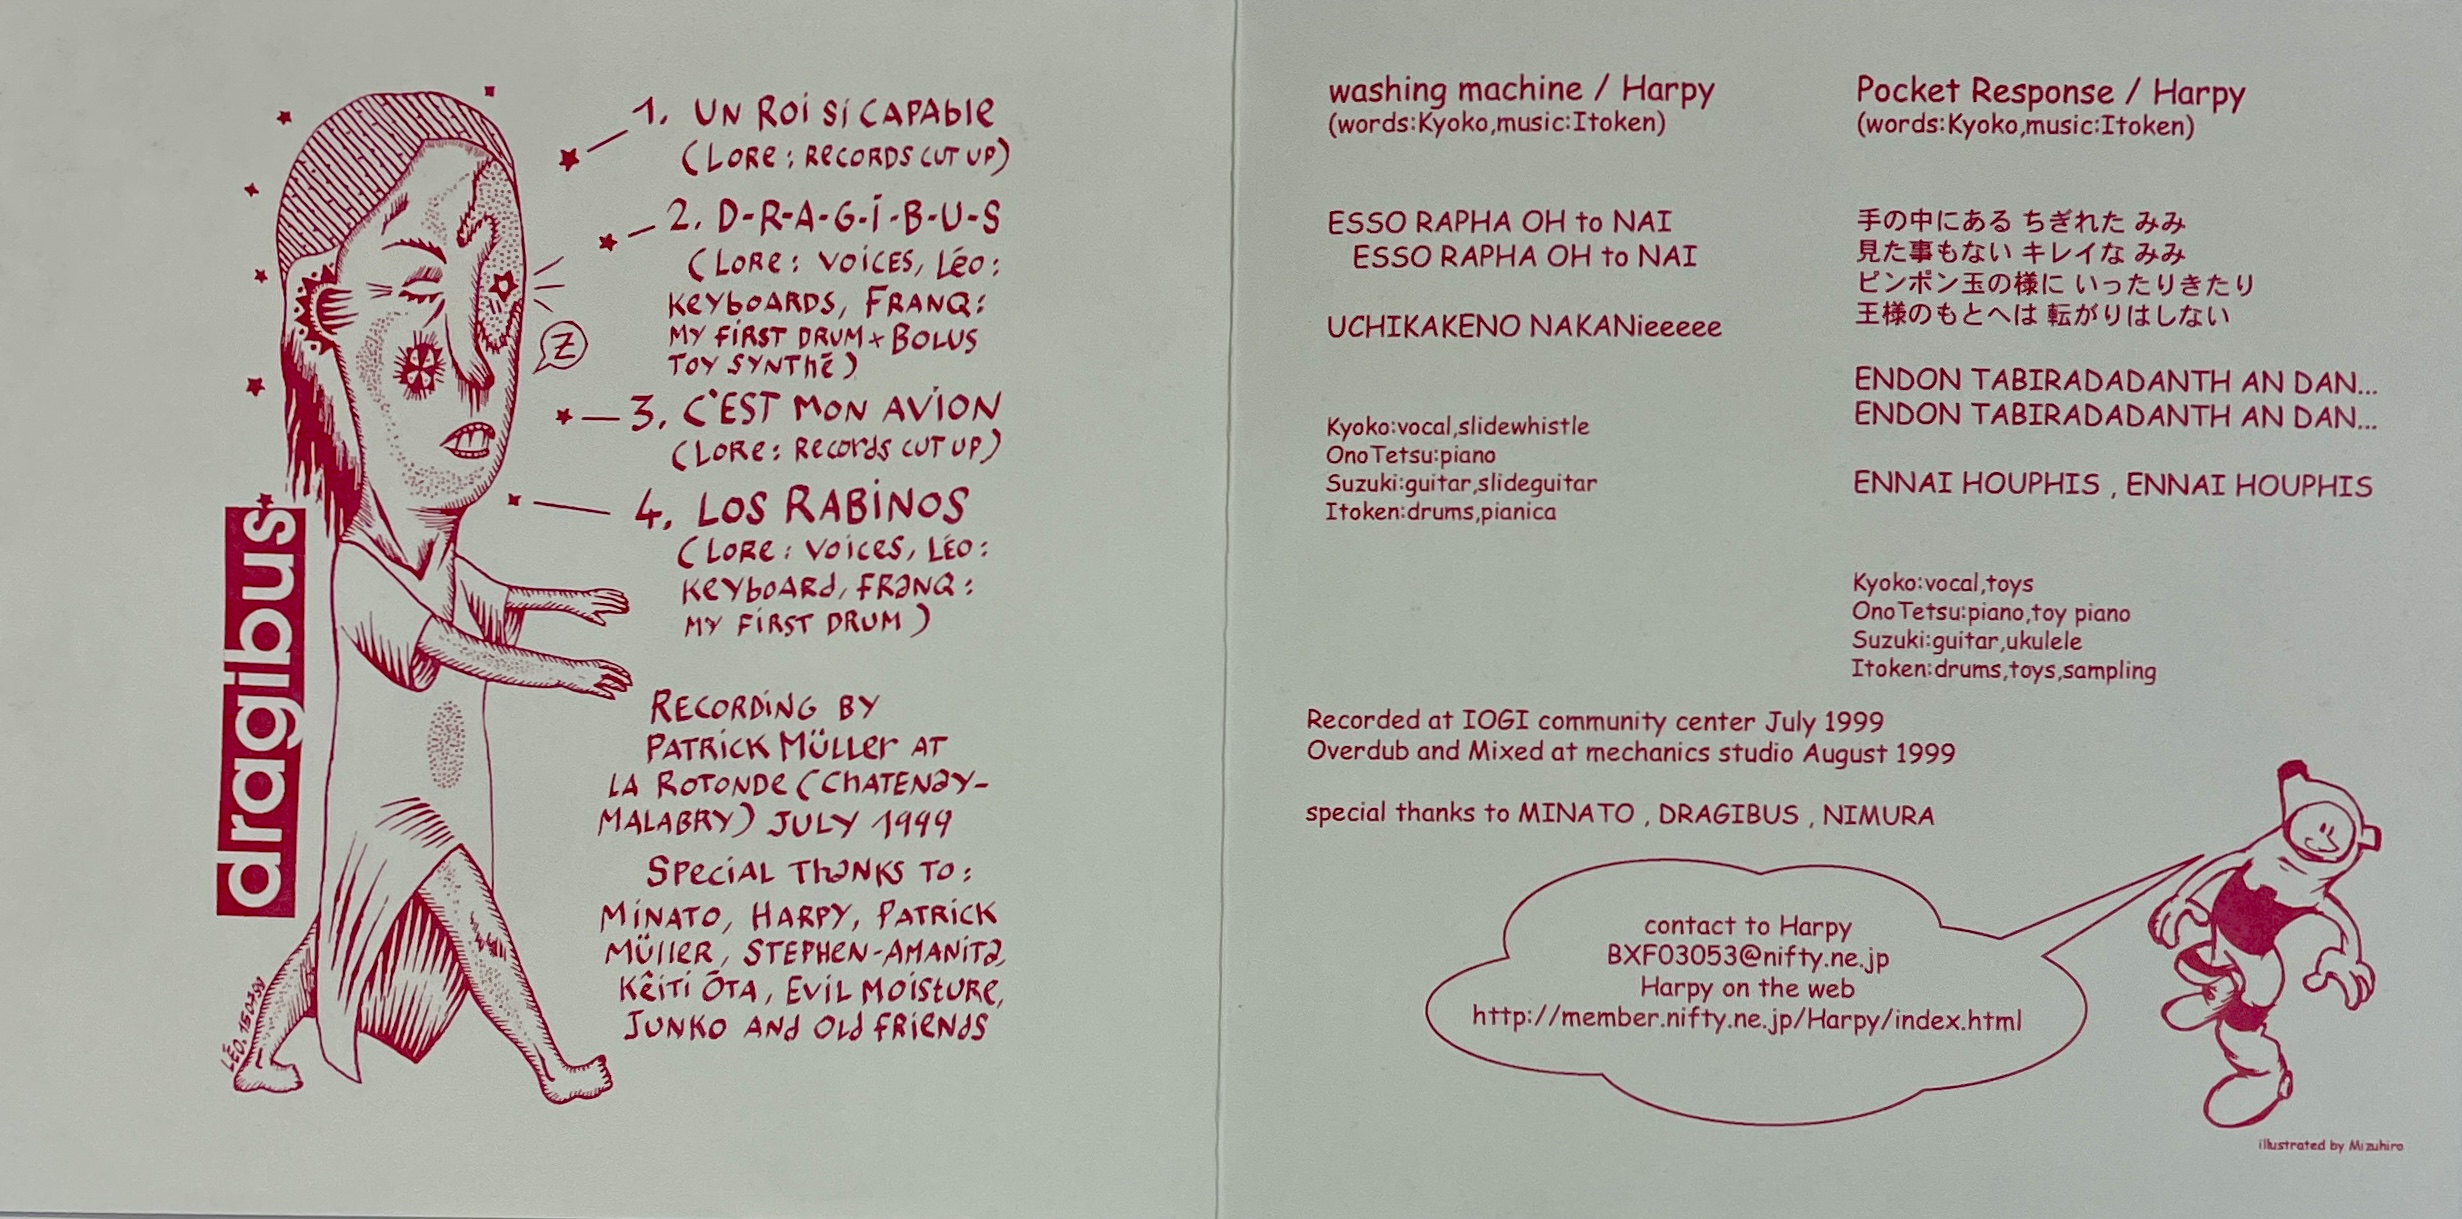 dragibus
1. UN ROi Si CAPAblE
(LORE : RECORDS CUT UP)
2. D-R-A-G-I-B-U-S
(LORE : VOICES, LÉO :
KEYbOARDS, FRANQ :
MY FIRST DRUM + BOLUS
TOY SYNThÉ)
3. C'EST MON AVION
(LORE : RECORdS CUT UP)
4. LOS RABINOS
(LORE : VOICES, LÉO :
KEYbOARd, FRANQ :
MY FIRST DRUM)
RECORDING BY
PATRICK MÜLLER AT
LA ROTONDE (ChATENAY-
MALABRY) JULY 1999
SPECIAL ThANKS TO :
MINATO, HARPY, PATRICK
MÜLLER, STEPHEN-AMANITA,
KÊITI ŌTA, EVIL MOISTURE,
JUNKO ANd OLd FRIENdS
Z
washing machine / Harpy
(words:Kyoko,music:Itoken)
ESSO RAPHA OH to NAI
ESSO RAPHA OH to NAI
UCHIKAKENO NAKANieeeee
Kyoko:vocal,slidewhistle
OnoTetsu:piano
Suzuki:guitar,slideguitar
Itoken:drums,pianica
Pocket Response / Harpy
(words:Kyoko,music:Itoken)
手の中にある ちぎれた みみ
見た事もない キレイな みみ
ピンポン玉の様に いったりきたり
王様のもとへは 転がりはしない
ENDON TABIRADADANTH AN DAN...
ENDON TABIRADADANTH AN DAN...
ENNAI HOUPHIS , ENNAI HOUPHIS
Kyoko:vocal,toys
OnoTetsu:piano,toy piano
Suzuki:guitar,ukulele
Itoken:drums,toys,sampling
Recorded at IOGI community center July 1999
Overdub and Mixed at mechanics studio August 1999
special thanks to MINATO , DRAGIBUS , NIMURA
contact to Harpy
BXF03053@nifty.ne.jp
Harpy on the web
http://member.nifty.ne.jp/Harpy/index.html
illustrated by Mizuhiro